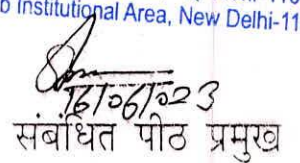 Institutional Area, New Delhi-11
16/06/2023
संबंधित पीठ प्रमुख